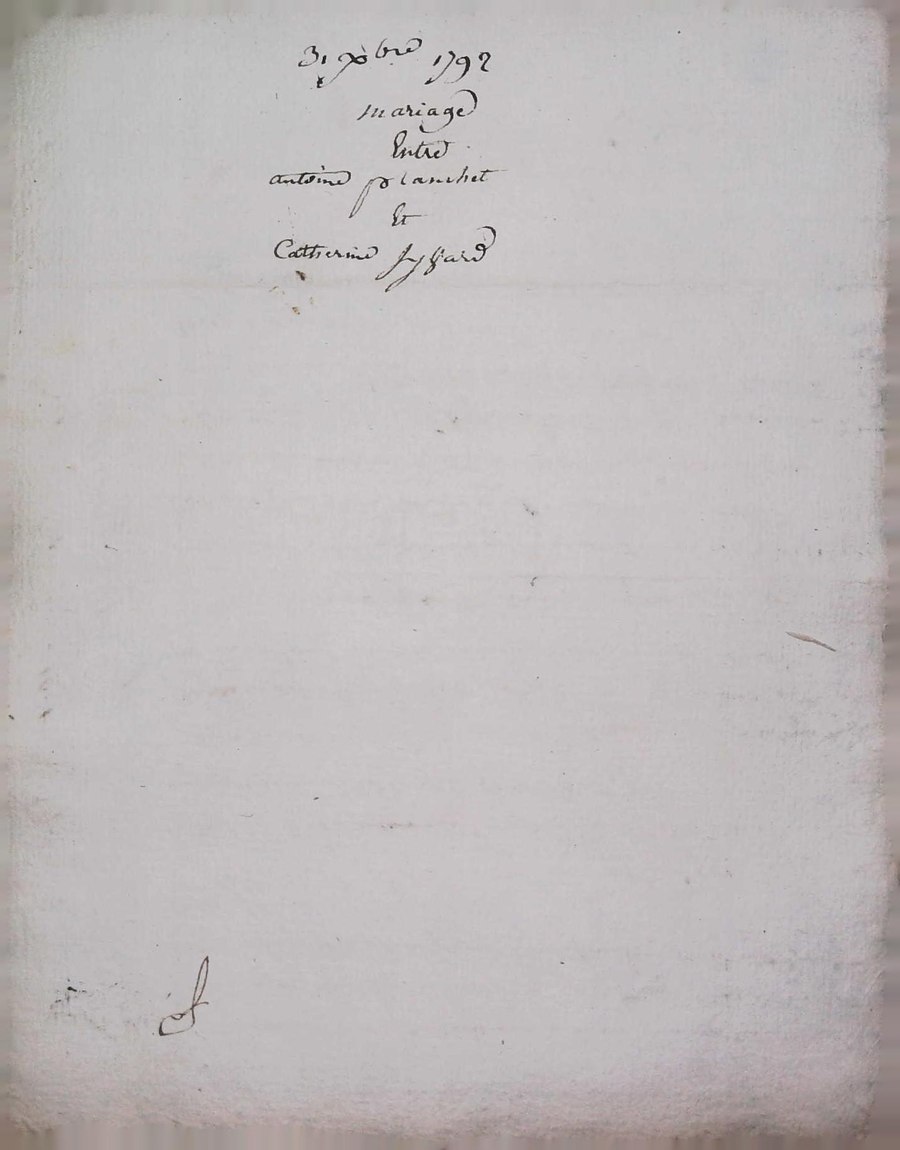 31 Xbre 1792
mariage
Entre
antoine planchet
Et
Catherine